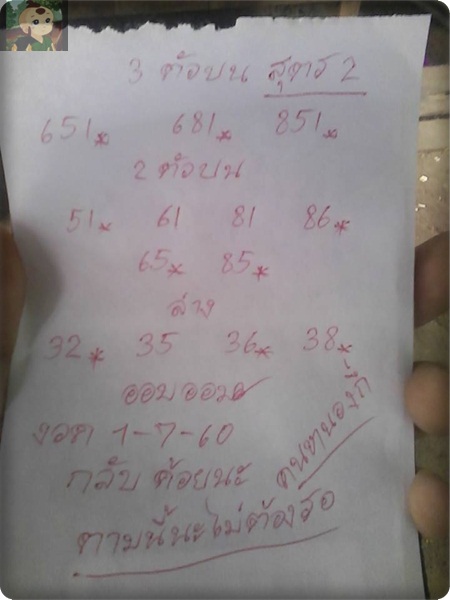 3 ตัวบน สูตร 2
651* 681* 851*
2 ตัวบน
51* 61 81 86*
65* 85*
ล่าง
32* 35 36* 38*
งวด 1-7-60
กลับ ด้วยนะ
ตามนี้นะไม่ต้องรอ